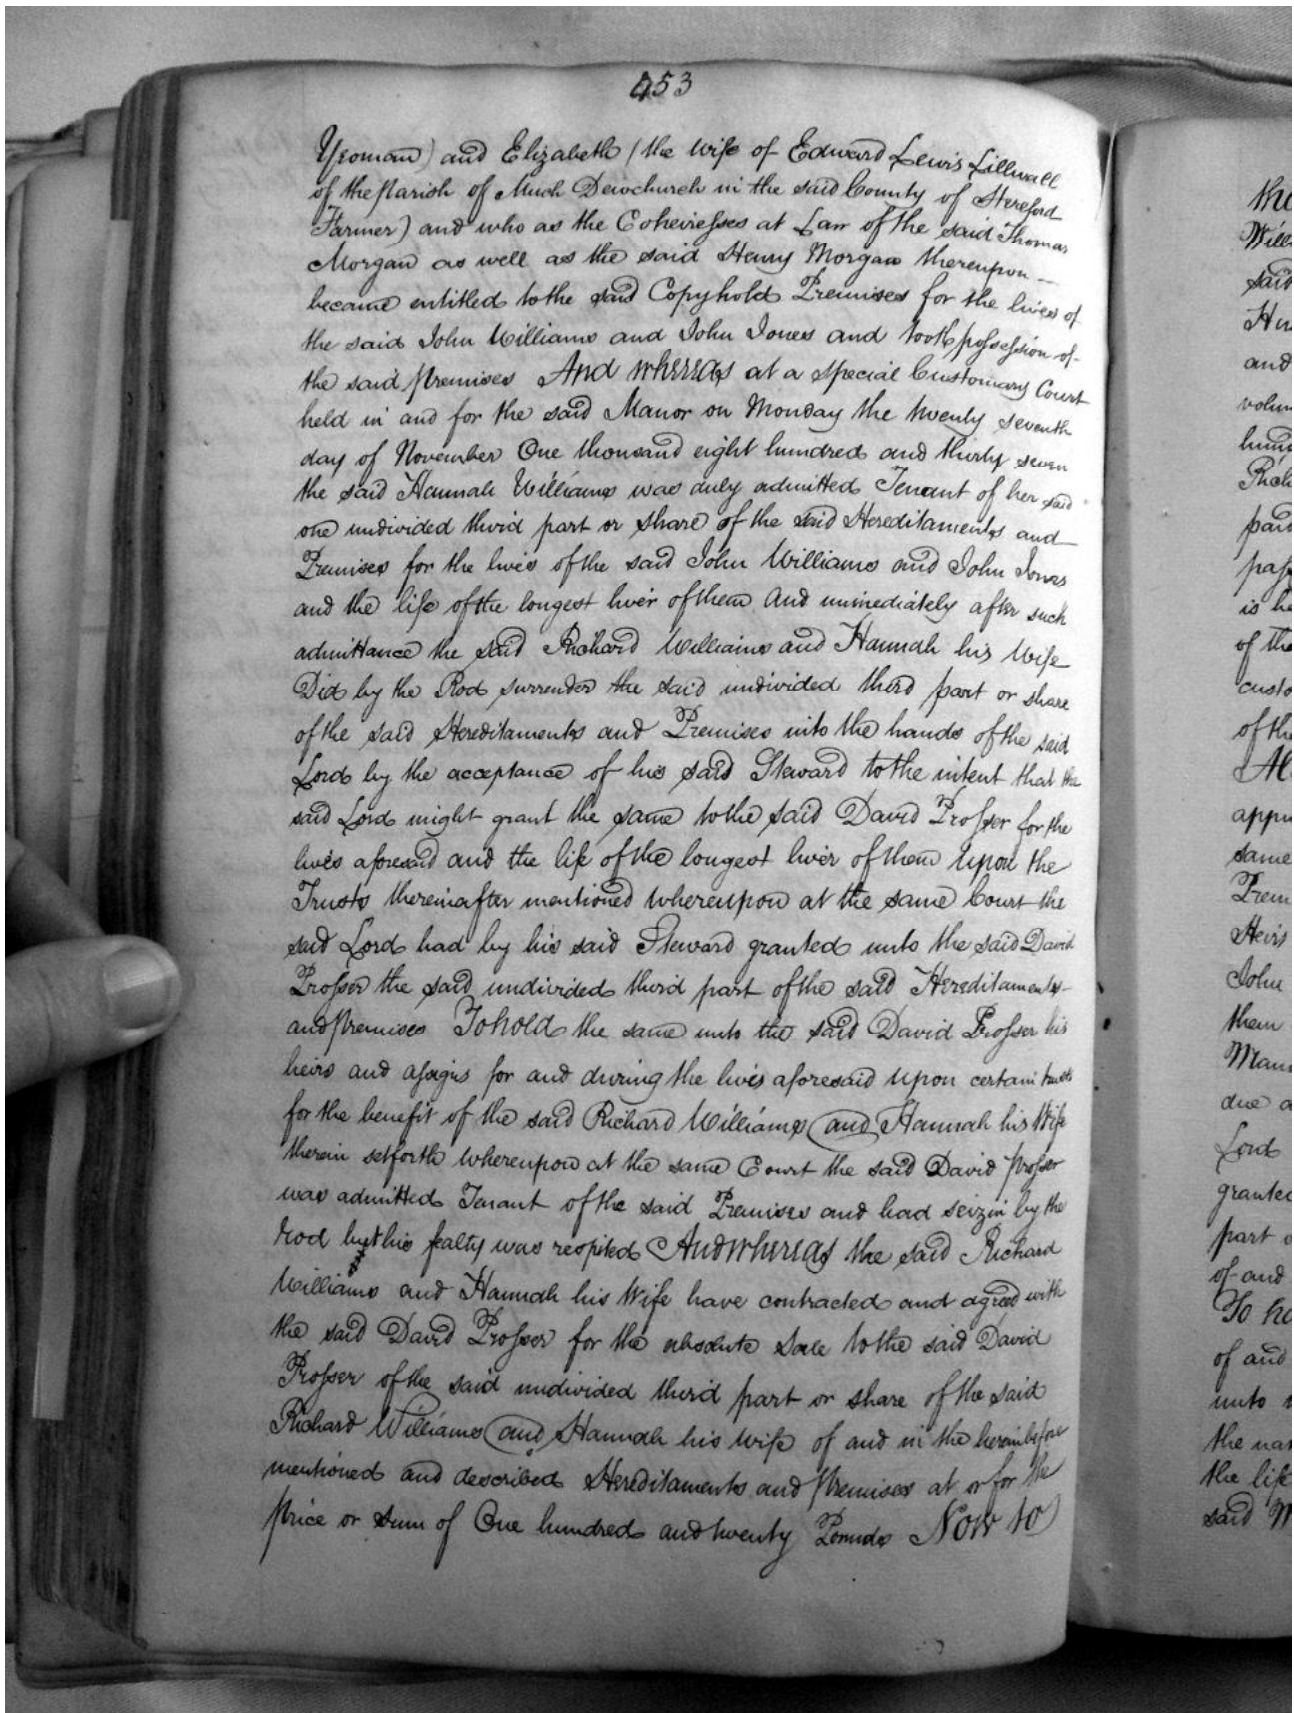 453
Yeoman) and Elizabeth (the wife of Edward Lewis Lillwall
of the parish of Much Dewchurch in the said County of Hereford
Farmer) and who as the Coheiresses at Law of the said Thomas
Morgan as well as the said Henry Morgan thereupon
became entitled to the said Copyhold Premises for the lives of
the said John Williams and John Jones and took possession of
the said premises And whereas at a Special Customary Court
held in and for the said Manor on Monday the twenty seventh
day of November One thousand eight hundred and thirty seven
the said Hannah Williams was duly admitted Tenant of her said
one undivided third part or share of the said Hereditaments and
Premises for the lives of the said John Williams and John Jones
and the life of the longest liver of them And immediately after such
admittance the said Richard Williams and Hannah his Wife
Did by the Rod surrender the said undivided third part or share
of the said Hereditaments and Premises into the hands of the said
Lord by the acceptance of his said Steward to the intent that the
said Lord might grant the same to the said David Prosser for the
lives aforesaid and the life of the longest liver of them Upon the
Trusts thereinafter mentioned whereupon at the same Court the
said Lord had by his said Steward granted unto the said David
Prosser the said undivided third part of the said Hereditaments
and premises To hold the same unto the said David Prosser his
heirs and assigns for and during the lives aforesaid Upon certain trusts
for the benefit of the said Richard Williams and Hannah his Wife
therein setforth whereupon at the same Court the said David prosser
was admitted Tenant of the said Premises and had seizin by the
rod but his fealty was respited And whereas the said Richard
Williams and Hannah his Wife have contracted and agreed with
the said David Prosser for the absolute Sale to the said David
Prosser of the said undivided third part or share of the said
Richard Williams and Hannah his wife of and in the hereinbefore
mentioned and described Hereditaments and premises at or for the
price or sum of One hundred and twenty Pounds Now to
said
and
same
John
them
due
Lord
part
of and
To
of and
unto
the
the life
said